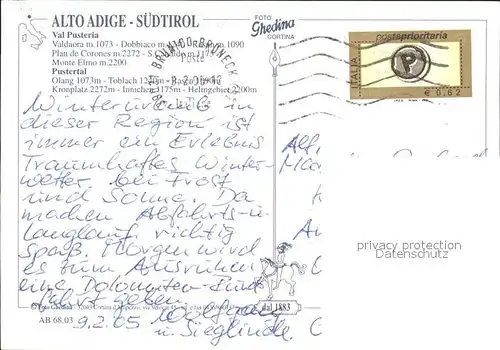 ALTO ADIGE - SÜDTIROL
Val Pusteria
Valdaora m.1073 - Dobbiaco m. m.1090
Plan de Corones m.2272 - S.
Monte Elmo m.2200
Pustertal
Olang 1073m - Toblach
Kronplatz 2272m - Innichen 1175m - Helmgebiet 2200m
FOTO
Ghedina
CORTINA
BRUNICO-BRUNECK
postaprioritaria
ITALIA
P
€ 0,62
Winterurlaub in
dieser Region ist
immer ein Erlebnis
Traumhaftes Winter-
wetter bei Frost
und Sonne. Da
machen Abfahrts-u-
langlauf richtig
Spaß. Morgen wird
es zum Ausruhen
eine Dolomiten-
fahrt geben.
Wolfgang
u. Sieglinde
9.2.05
Foto Ghedina
AB 68.03
dal 1883
privacy protection
Datenschutz